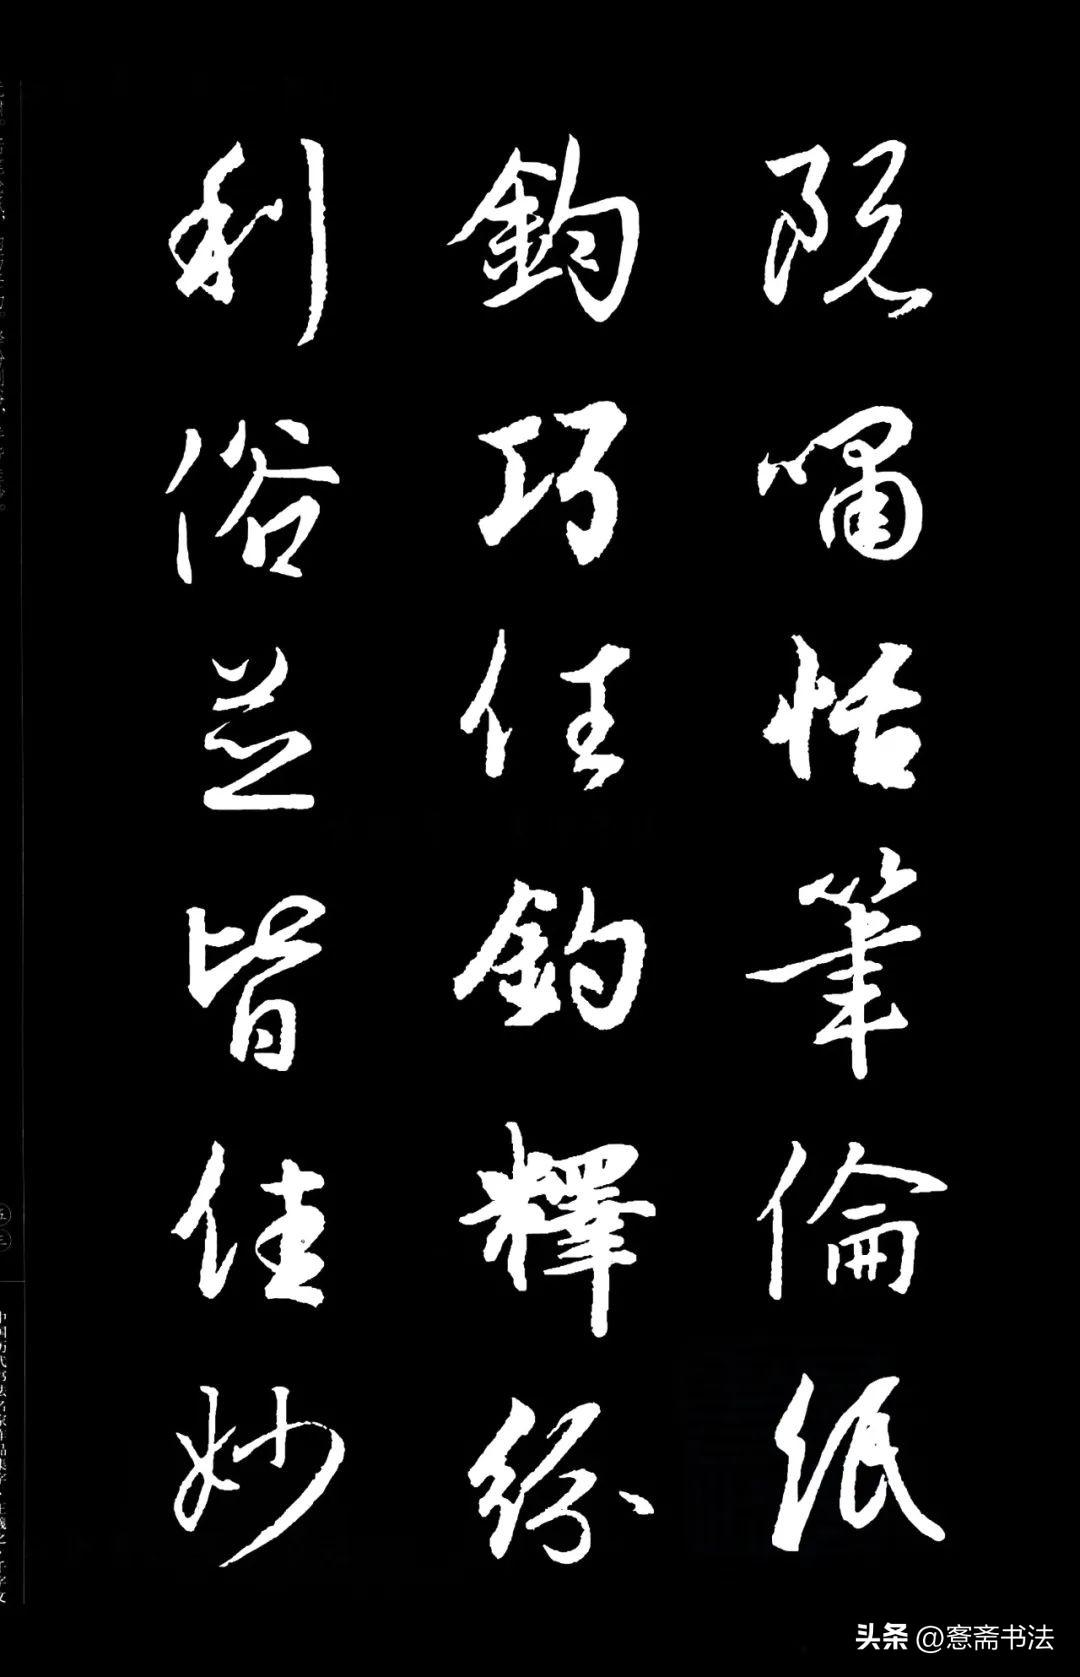 阮嘯恬筆倫紙
鈞巧任釣釋紛
利俗並皆佳妙
头条 @愙斋书法